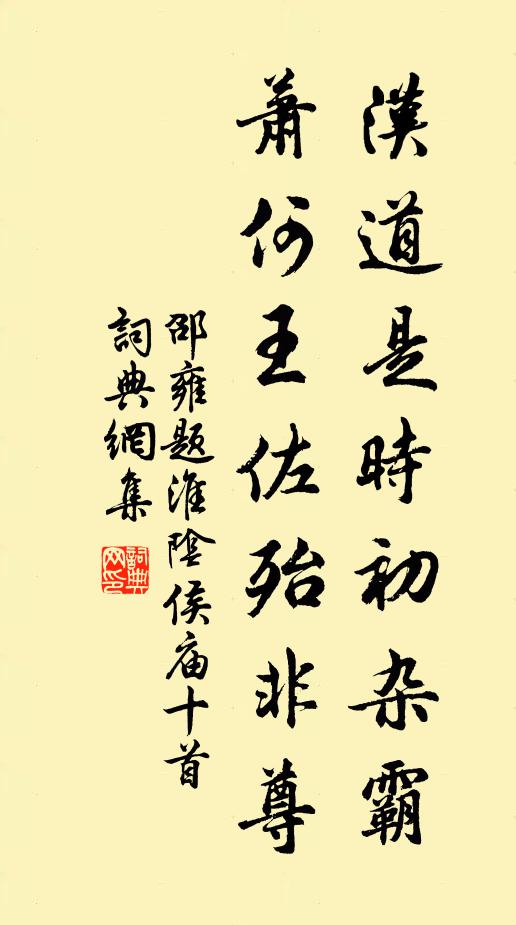 漢道是時初杂霸
蕭何王佐殆非尊
邵雍題淮陰侯庙十首
詞典網集
詞典网印